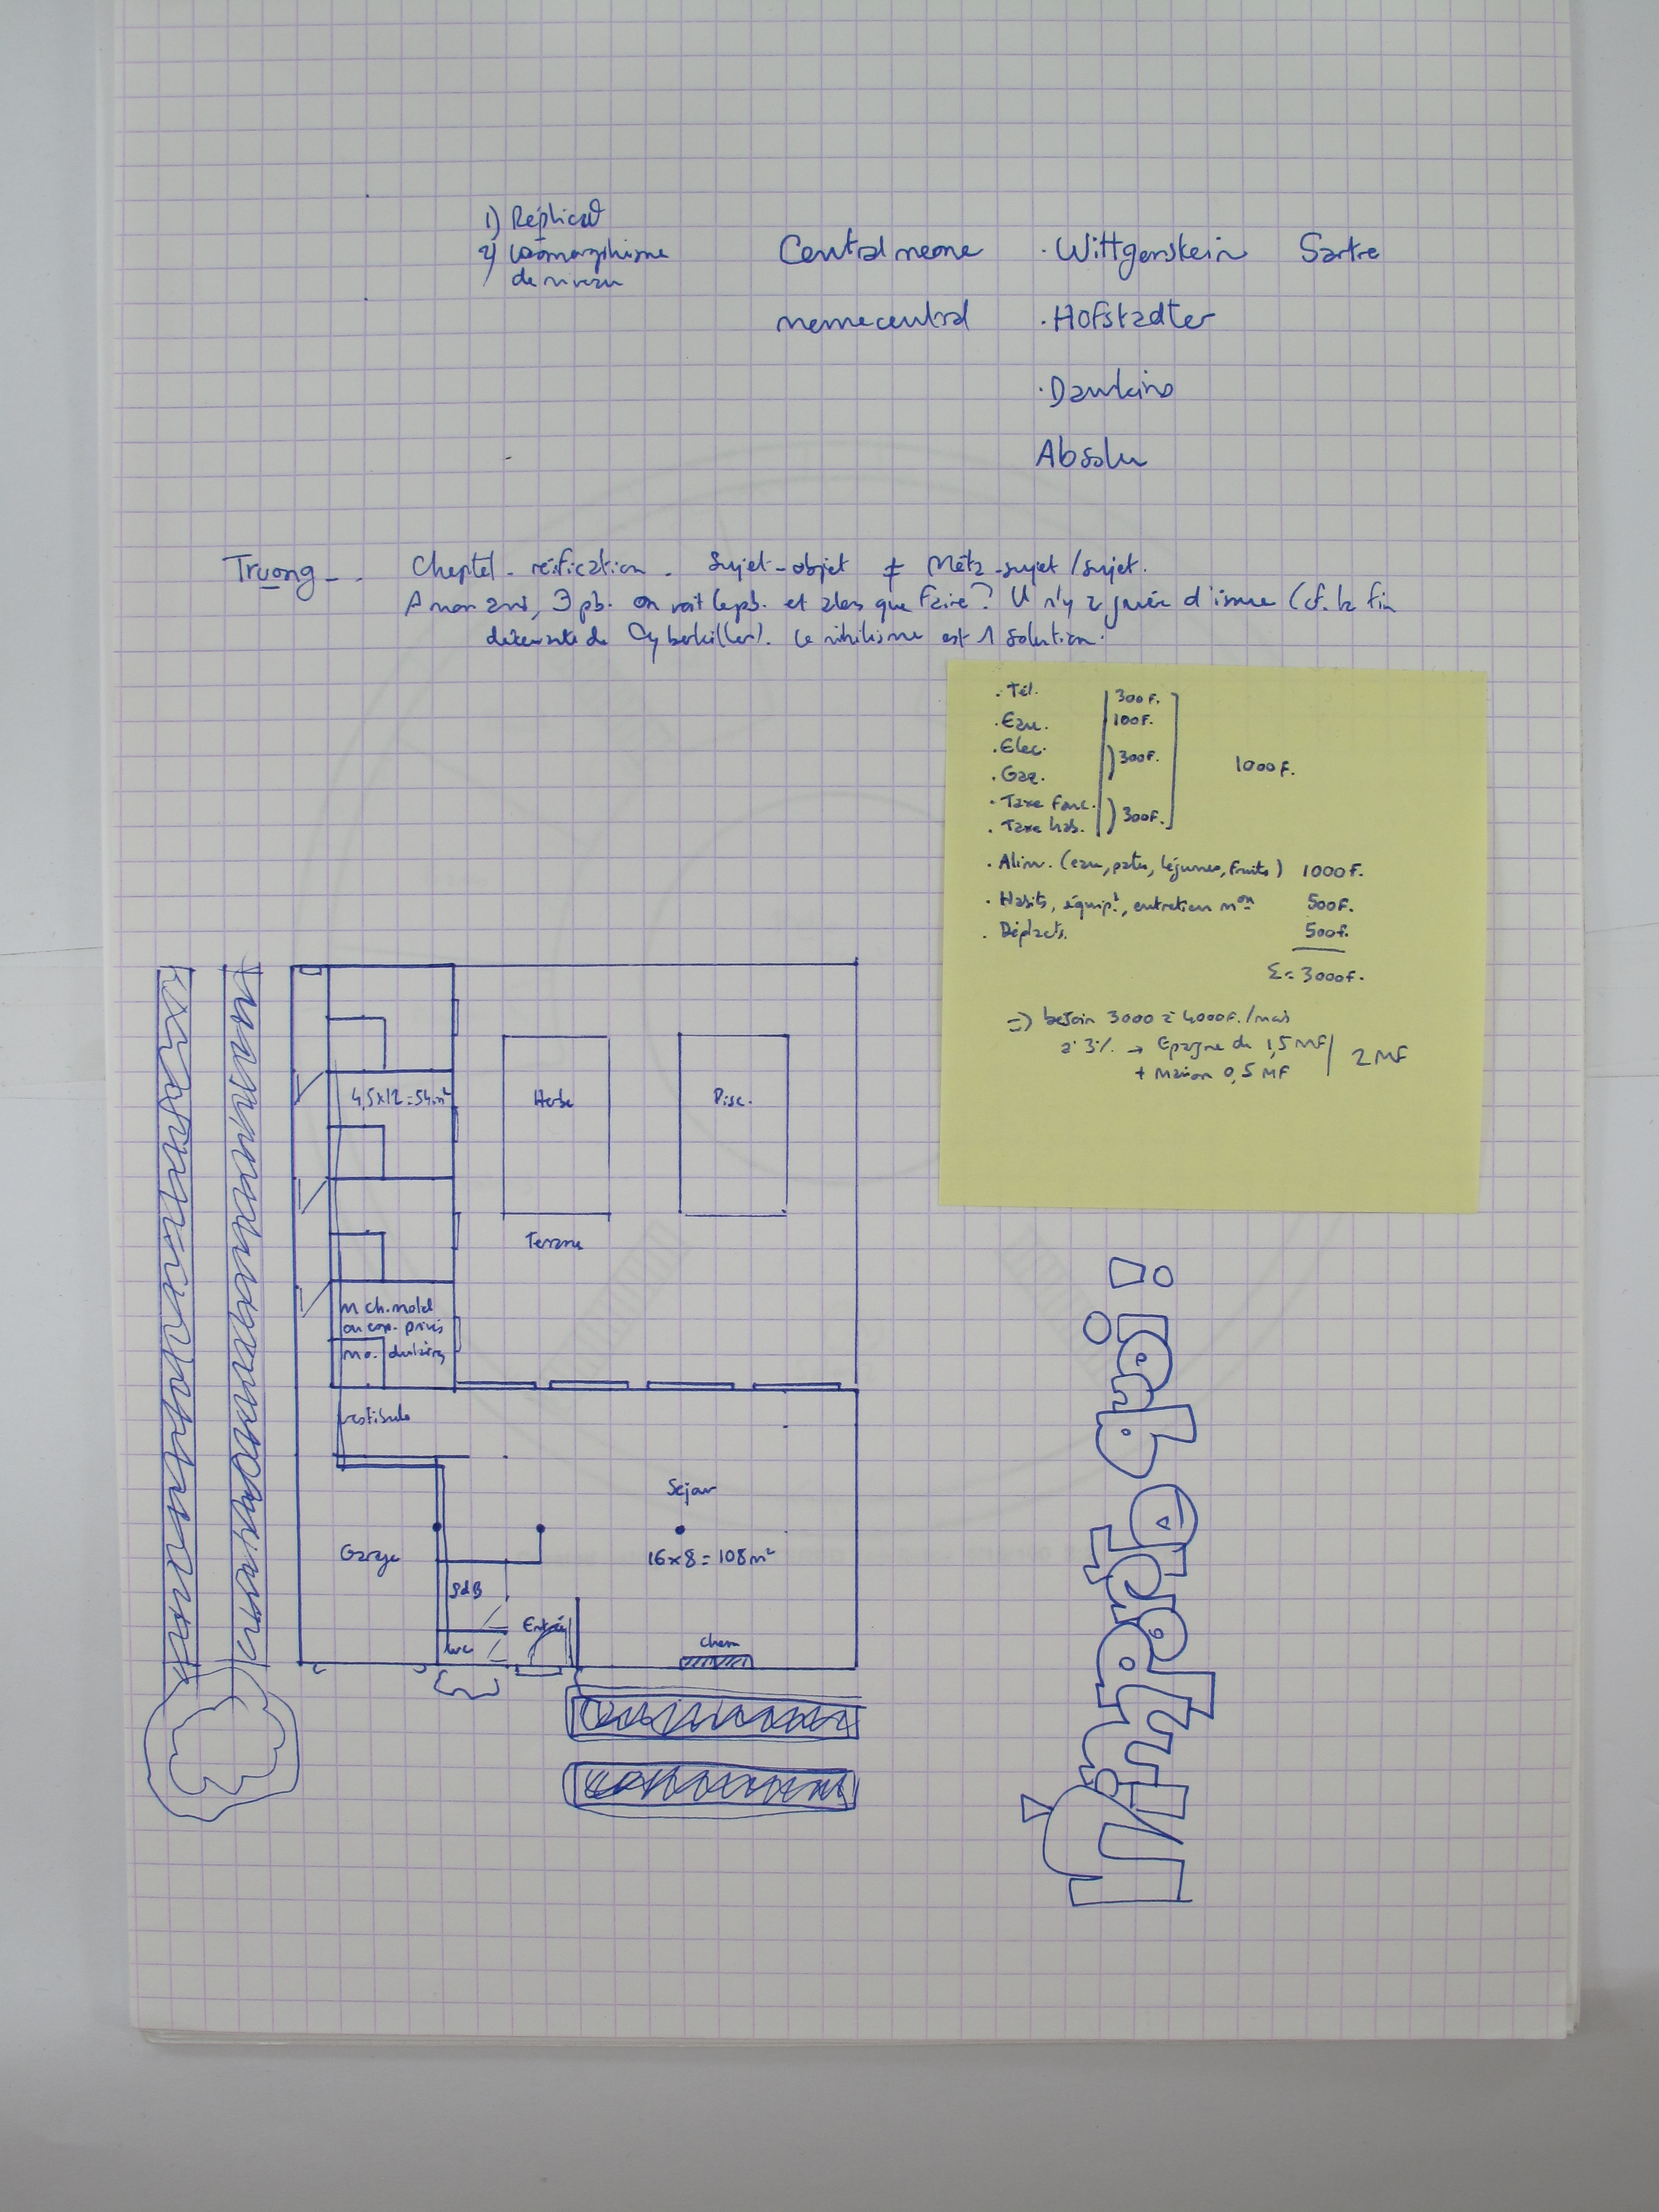 1) Réplicat°
2) isomorphisme
de niveau
Central meme
meme central
· Wittgenstein
· Hofstadter
· Dawkins
Absolu
Sartre
Truong - . Cheptel - réification - Sujet-objet ≠ Méta-sujet/sujet.
A mon avis, ∃ pb. on voit le pb. et alors que faire ? Il n'y a guère d'issue (cf. la fin
de Cyberkiller). Le nihilisme est 1 solution.
· Tél. 300F.
· Eau. 100F.
· Elec.
· Gaz. 300F.
· Taxe fonc.
· Taxe hab. 300F.
1000F.
· Alim. (eau, pates, légumes, fruits) 1000F.
· Habits, équipt, entretien mon 500F.
· Déplacts. 500F.
Σ = 3000F.
=> besoin 3000 à 4000F./mois
à 3% → Epargne de 1,5 MF
+ Maison 0,5 MF
2 MF
4,5x12=54m²
Herbe
Pisc.
Terrasse
ou privés
vestibule
Séjour
16x8=108m²
Garage
SdB
WC
Entrée
Chem